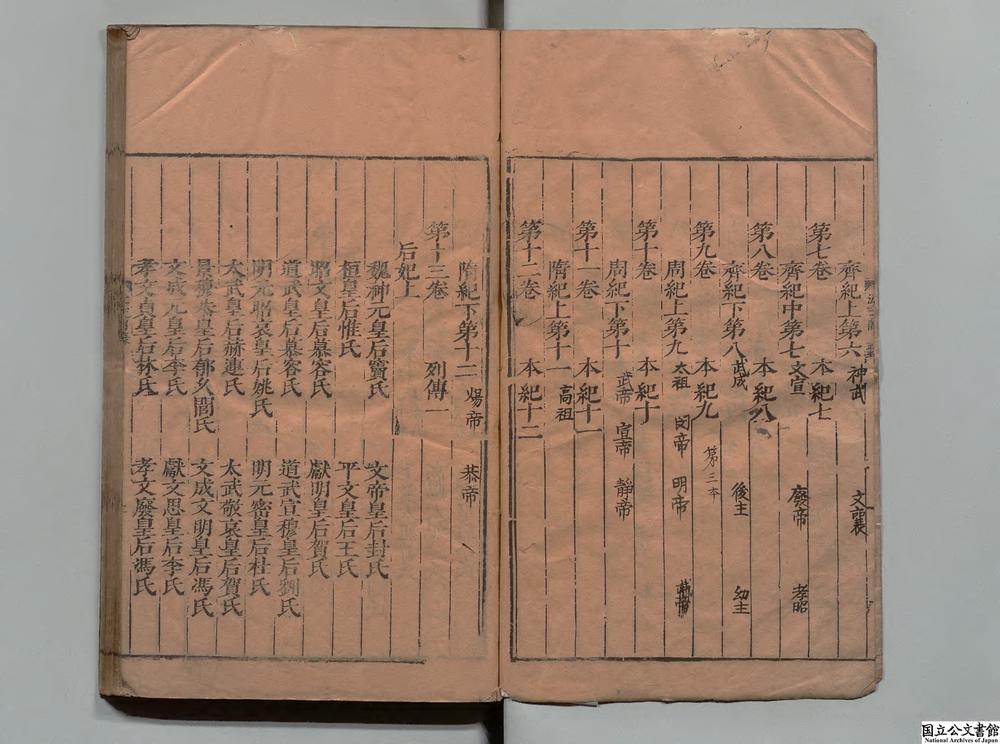 第七卷　本紀七
齊紀上第六　神武　文襄
第八卷　本紀八
齊紀中第七　文宣　廢帝　孝昭
第九卷　本紀九
齊紀下第八　武成　後主　幼主
第十卷　本紀十
周紀上第九　太祖　閔帝　明帝
第三本
第十一卷　本紀十一
周紀下第十　武帝　宣帝　靜帝
第十二卷　本紀十二
隋紀上第十一　高祖
隋紀下第十二　煬帝　恭帝
第十三卷　列傳一
后妃上
魏神元皇后竇氏　文帝皇后封氏
桓皇后惟氏　平文皇后王氏
昭文皇后慕容氏　獻明皇后賀氏
道武皇后慕容氏　道武宣穆皇后劉氏
明元昭哀皇后姚氏　明元密皇后杜氏
太武皇后赫連氏　太武敬哀皇后賀氏
景穆恭皇后郁久閭氏　文成文明皇后馮氏
文成元皇后李氏　獻文思皇后李氏
孝文貞皇后林氏　孝文廢皇后馮氏
国立公文書館
National Archives of Japan